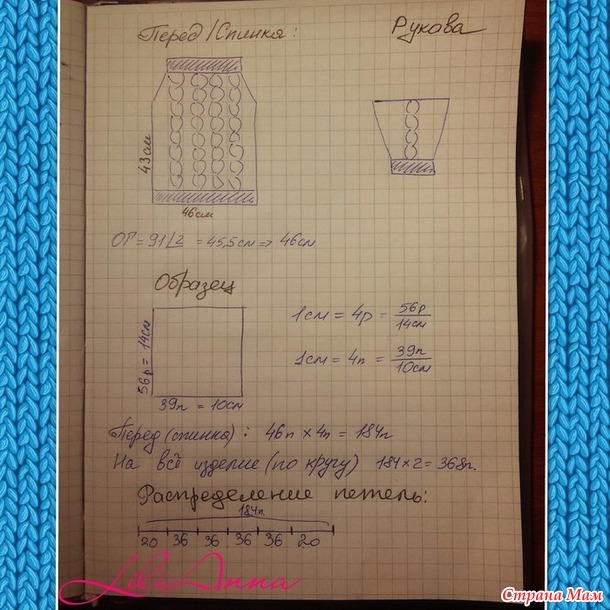 Перед/Спинка:
Рукава
43см
46см
ОГ = 91/2 = 45,5см => 46см
Образец
56р = 14см
39п = 10см
1см = 4р = 56р/14см
1см = 4п = 39п/10см
Перед (спинка): 46п × 4п = 184п
На всё изделие (по кругу) 184×2 = 368п.
Распределение петель:
184п.
20 36 36 36 36 20
LiliAnna
Страна Мам